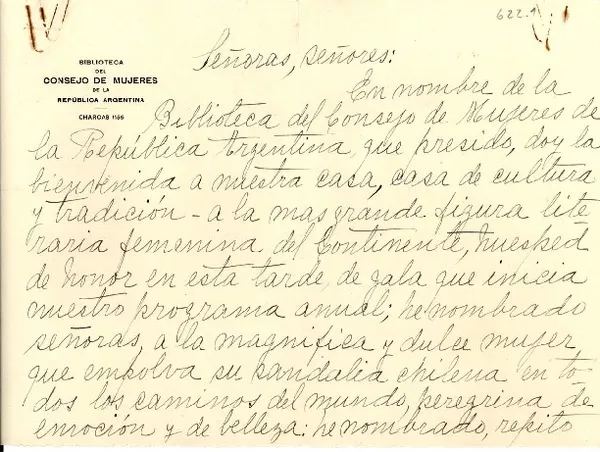 622.1
BIBLIOTECA
DEL
CONSEJO DE MUJERES
DE LA
REPÚBLICA ARGENTINA
CHARCAS 1155
Señoras, señores:
En nombre de la
Biblioteca del Consejo de Mujeres de
la República Argentina que presido, doy la
bienvenida a nuestra casa, casa de cultura
y tradición - a la mas grande figura lite
raria femenina del Continente, huesped
de honor en esta tarde de gala que inicia
nuestro programa anual; he nombrado
señoras, a la magnifica y dulce mujer
que empolva su sandalia chilena en to-
dos los caminos del mundo, peregrina de
emoción y de belleza: he nombrado, repito